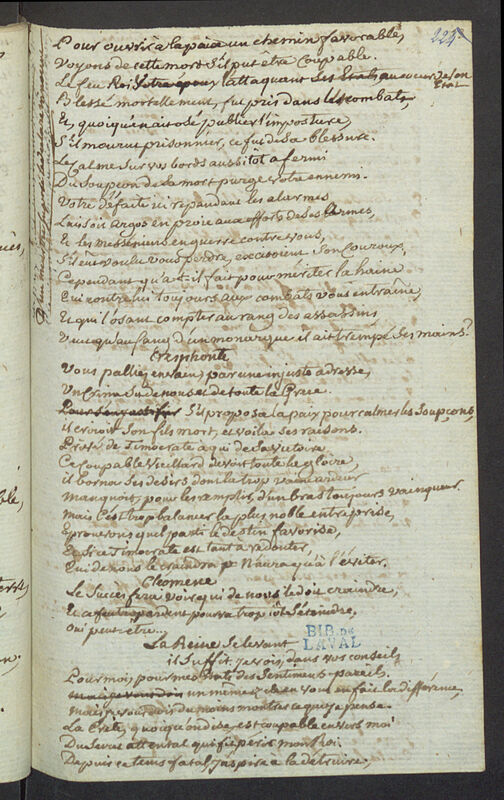 224
Pour ouvrir à la paix un chemin favorable,
Voyons de cette mort S'il put etre Coupable.
Le feu Roi Votre époux l'attaquant au coeur de Son
Etat
Blessé mortellement, fut pris dans les combats,
Et, quoiqu'on ait osé publier l'imposture,
S'il mourut prisonnier, ce fut de Sa blessure.
Le Calme Sur vos bords aussitôt afermi
Du Soupçon de Sa mort purge votre ennemi.
Votre défaite ici repandant les alarmes
Laissoit argos en proie aux efforts de Ses armes,
Et les Messeniens en guerre contre vous,
S'il eut voulu vous perdre, executoient Son Couroux.
Cependant qu'a-t-il fait pour mériter la haine
Qui contre lui toujours aux combats vous entraîne,
Et qui l'osant compter au rang des assassins
Veut qu'au sang d'un monarque il ait trempé Ses mains?
Cresphonte
Vous palliez en vain, par une injuste adresse,
Un Crime Su de nous et de toute la Grece.
S'il proposa la paix pour calmer les Soupçons,
il croioit Son fils mort, et voila Ses raisons.
Privé de Timocrate à qui de Sa victoire,
Ce coupable Vieillard devoit toute la gloire,
il borna Ses desirs dont la trop vaine ardeur
Manquoit, pour les remplir, d'un bras toujours vainqueur.
Mais C'est trop balancer la plus noble entreprise,
Eprouvons quel parti le destin favorise,
Et Si ce Timocrate est tant à redouter,
Qui de nous le craindra n'aura qu'à l'éviter.
Cleomene
Le Succès fera voir qui de nous le doit craindre,
Et ce feu trop ardent pourra trop tôt S'éteindre,
Oui peut-etre...
La Reine Se levant
il Suffit. je vois, dans vos conseils,
Pour moi, pour mes Etats des Sentimens pareils.
un même zele en vous en fait la différence,
Mais je vous dois du moins montrer ce que je pense.
La Crete, quoiqu'on dise, est coupable envers moi
Du Lache attentat qui fit périr mon Roi.
Depuis ce tems fatal, j'aspire à la detruire,
BIB. DE
LAVAL